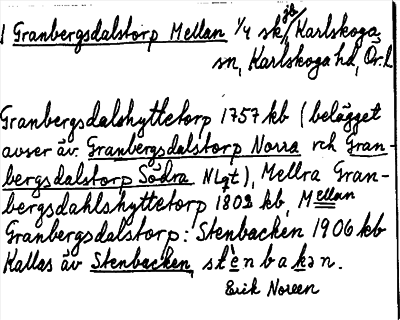 1 Granbergsdalstorp Mellan 1/4 sk jb/Karlskoga
sn, Karlskoga hd, Ör. L.
Granbergsdalshyttetorp 1757 kb (belägget
avser äv. Granbergsdalstorp Norra och Gran-
bergsdalstorp Södra NLgt), Mellra Gran-
bergsdahlshyttetorp 1802 kb, Mellan
Granbergsdalstorp: Stenbacken 1906 kb
Kallas äv Stenbacken, stènbakən.
Erik Noreen